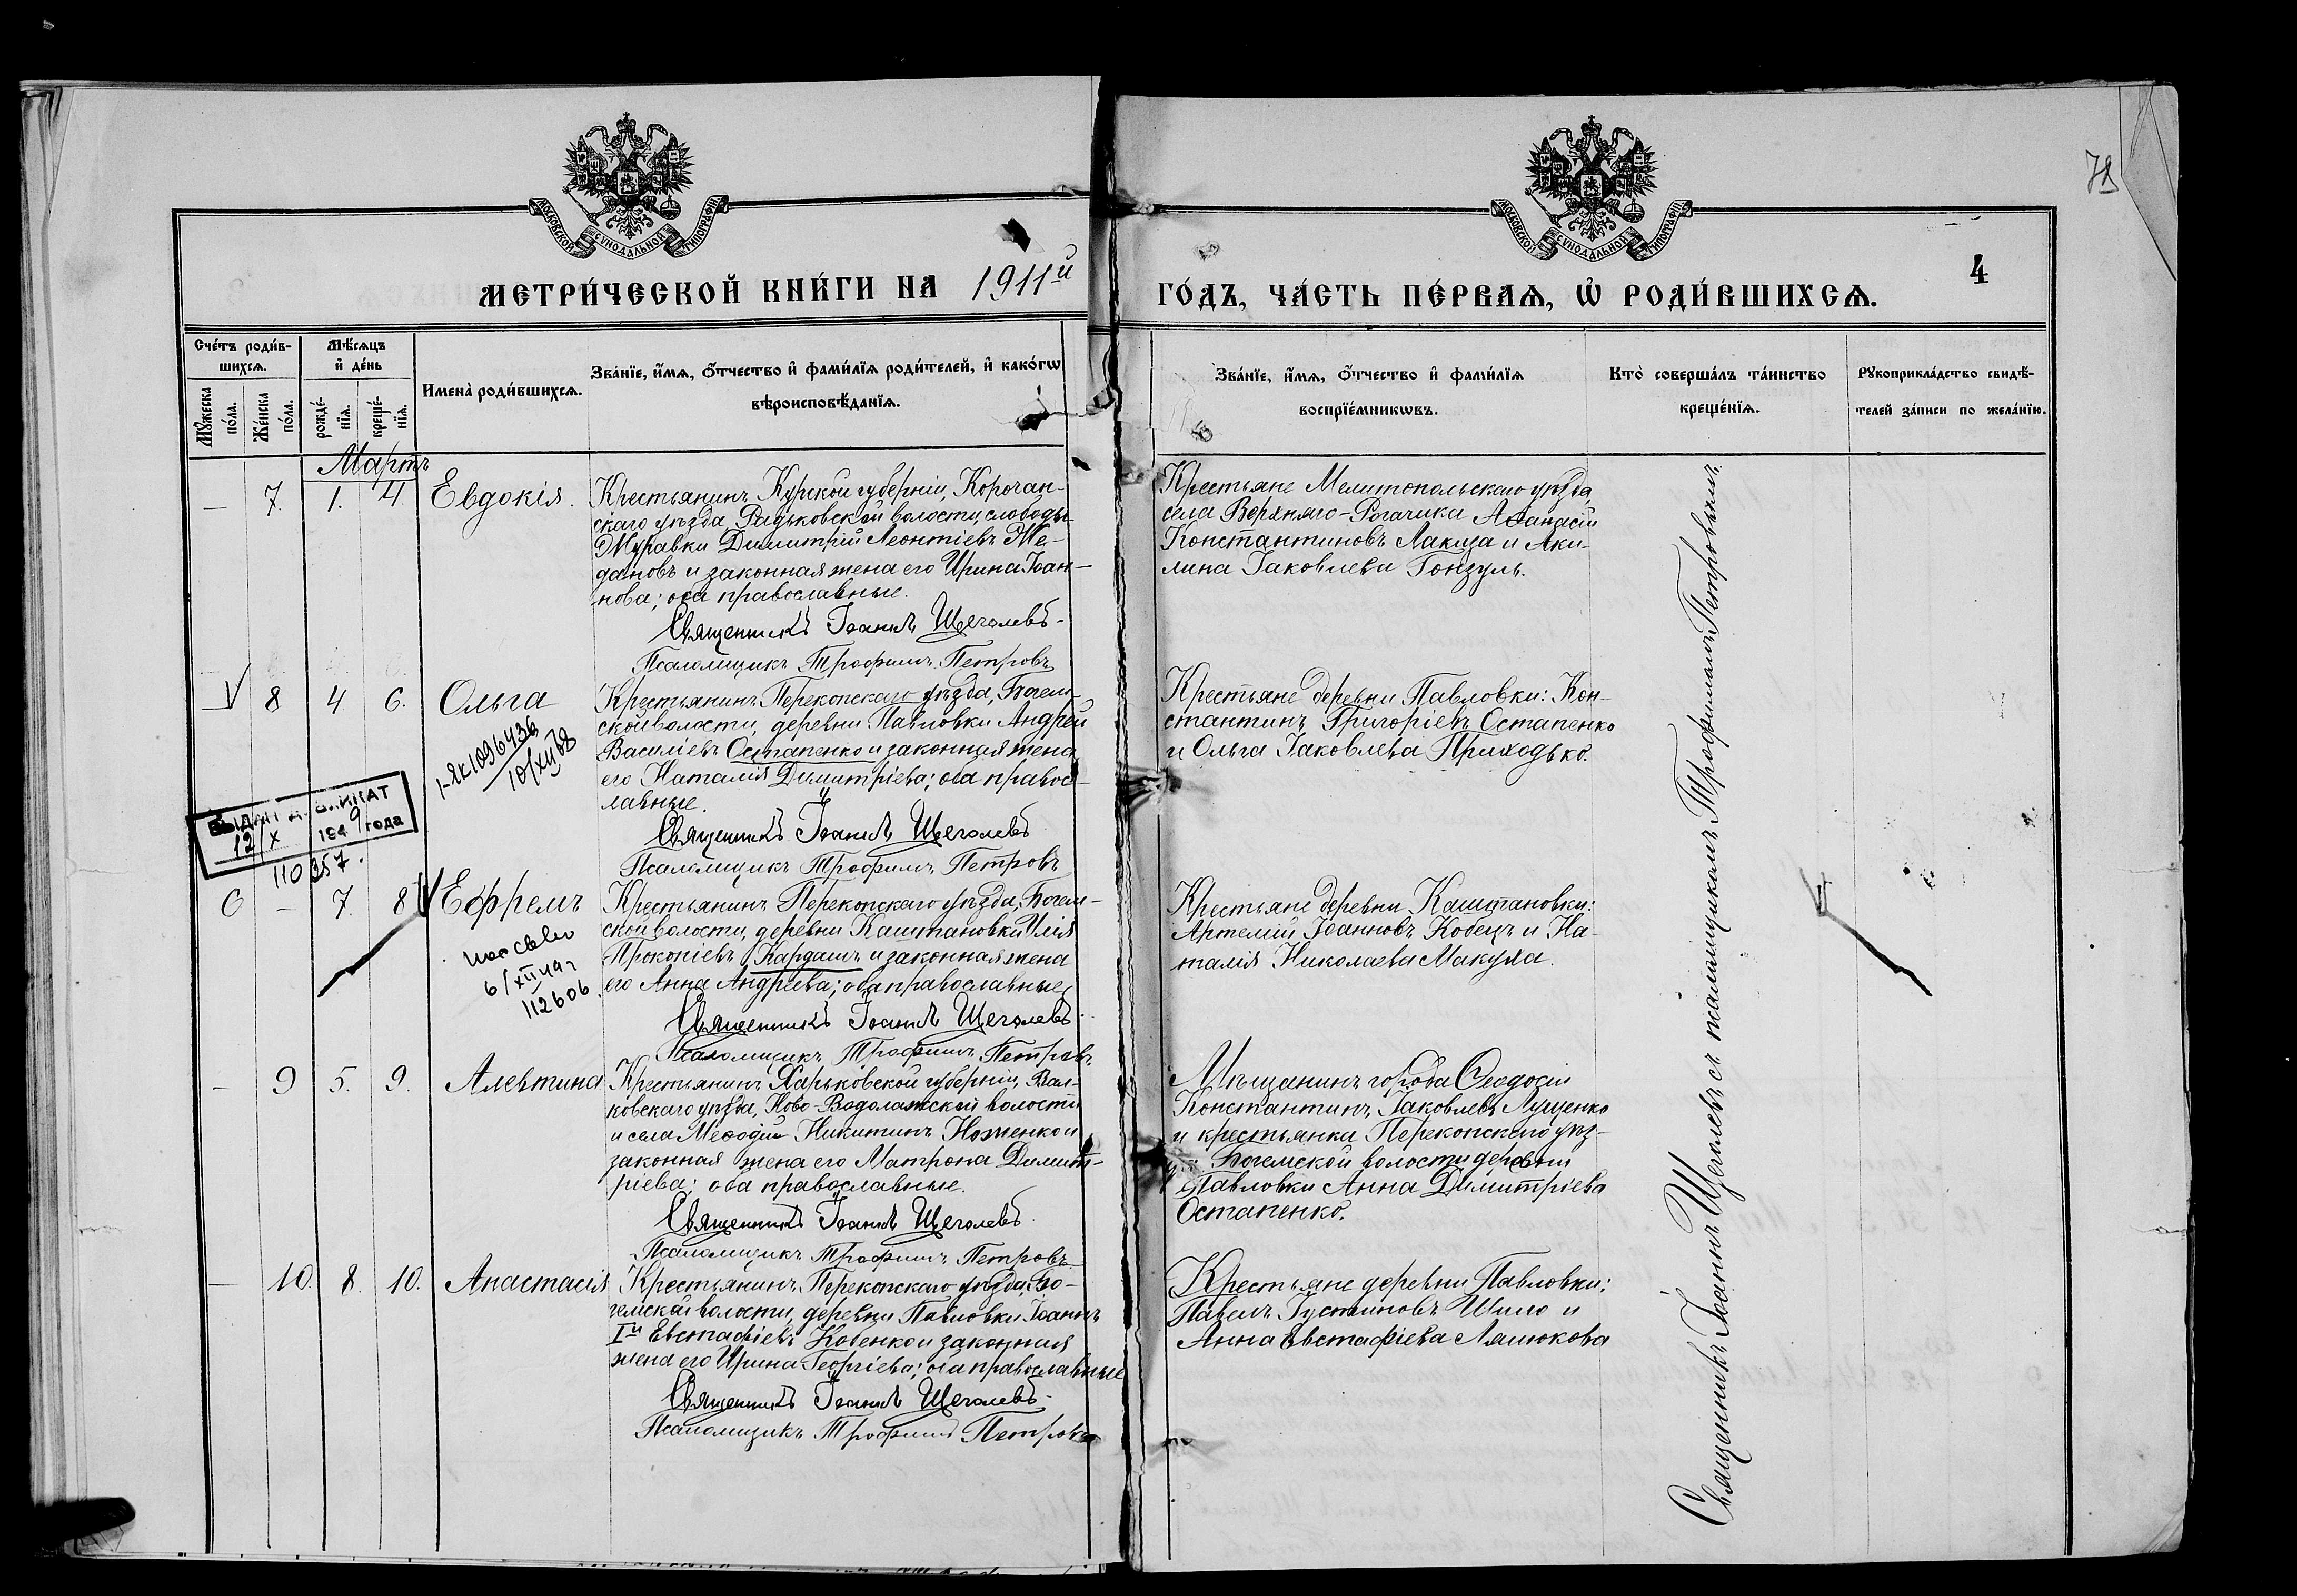 78
МОСКОВСКОЙ СѴНОДАЛЬНОЙ ТИПОГРАФІИ
МОСКОВСКОЙ СѴНОДАЛЬНОЙ ТИПОГРАФІИ
МЕТРИ́ЧЕСКОЙ КНИ́ГИ НА 1911й
ГО́ДЪ, ЧА́СТЬ ПЕ́РВАѦ, Ѡ҆ РОДИ́ВШИХСѦ.
4
Сче́тъ роди́в-
шихсѧ.
Мꙋ́жеска по́ла.
Же́нска по́ла.
Мѣ́сѧцъ
и҆ де́нь
рожде́-
нїѧ.
креще́-
нїѧ.
Имена̀ роди́вшихсѧ.
Зва́нїе, и҆́мѧ, ѻ҆́тчество и҆ фами́лїѧ роди́телей, и҆ како́гѡ
вѣроисповѣ́данїѧ.
Зва́нїе, и҆́мѧ, ѻ҆́тчество и҆ фами́лїѧ
воспрїе́мникѡвъ.
Кто̀ соверша́лъ та́инство
креще́нїѧ.
Рꙋкоприкла́дство свидѣ́-
телей за́писи по жела́нїю.
Мартъ
— 7. 1. 4. Евдокія.
Крестьянинъ Курской губерніи, Корочан-
скаго уѣзда, Радьковской волости, слободы
Муравки Димитрій Леонтіевъ Же-
дановъ и законная жена его Ирина Іоан-
нова; оба православные.
Священникъ Іоаннъ Щеголевъ
Псаломщикъ Трофимъ Петровъ
Крестьяне Мелитопольскаго уѣзда,
села Верхняго-Рогачика Аѳанасій
Константиновъ Лакиза и Аки-
лина Іаковлева Гонзуль.
V 8 4 6. Ольга
1-ЯК 1096436
10/XII 68
Крестьянинъ Перекопскаго уѣзда, Богем-
ской волости, деревни Павловки Андрей
Василіевъ Остапенко и законная жена
его Наталія Димитріева; оба право-
лавные.
Священникъ Іоаннъ Щеголевъ
Псаломщикъ Трофимъ Петровъ
Крестьяне деревни Павловки: Кон-
стантинъ Григоріевъ Остапенко
и Ольга Іаковлева Приходько.
ВЫДАН ДУБЛИКАТ
12/X 1949 года
110357.
6 — 7. 8 V Ефремъ
6/XII 49 г
112606
Крестьянинъ Перекопскаго уѣзда, Богем-
ской волости, деревни Каштановки Илія
Прокопіевъ Кардашъ и законная жена
его Анна Андреева; оба православные
Священникъ Іоаннъ Щеголевъ
Псаломщикъ Трофимъ Петровъ
Крестьяне деревни Каштановки:
Артемій Іоанновъ Кобецъ и На-
талія Николаева Макуха.
V
— 9 5. 9. Алевтина
Крестьянинъ Харьковской губерніи, Вал-
ковскаго уѣзда, Ново-Водолажской волости
и села Меѳодій Никитинъ Ноженко и
законная жена его Матрона Димит-
ріева; оба православные.
Священникъ Іоаннъ Щеголевъ
Псаломщикъ Трофимъ Петровъ
Мѣщанинъ города Ѳеодосіи
Константинъ Іаковлевъ Луценко
и крестьянка Перекопскаго уѣз-
да Богемской волости деревни
Павловки Анна Димитріева
Остапенко.
— 10. 8. 10. Анастасія
Крестьянинъ Перекопскаго уѣзда, Бо-
гемской волости, деревни Павловки Іоаннъ
Iй Евстафіевъ Ковенко и законная
жена его Ирина Георгіева; оба православные
Священникъ Іоаннъ Щеголевъ
Псаломщикъ Трофимъ Петровъ
Крестьяне деревни Павловки:
Павелъ Іустиновъ Шило и
Анна Евстафіева Лашюкова
Священникъ Іоаннъ Щеголевъ съ псаломщикомъ Трофимомъ Петровымъ.